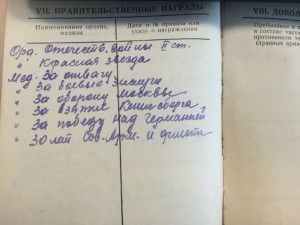 VII. ПРАВИТЕЛЬСТВЕННЫЕ НАГРАДЫ
Наименование ордена, медали
Дата и № приказа или указа о награждении
Орд. Отечеств. войны II ст.
" Красная звезда
Мед. За отвагу
" За боевые заслуги
" За оборону Москвы
" За взятие Кенигсберга
" За победу над Германией
" 30 лет Сов. Арм. и флота
VIII. ДОПО
Пребывание
и составе парти
противника
странных арми